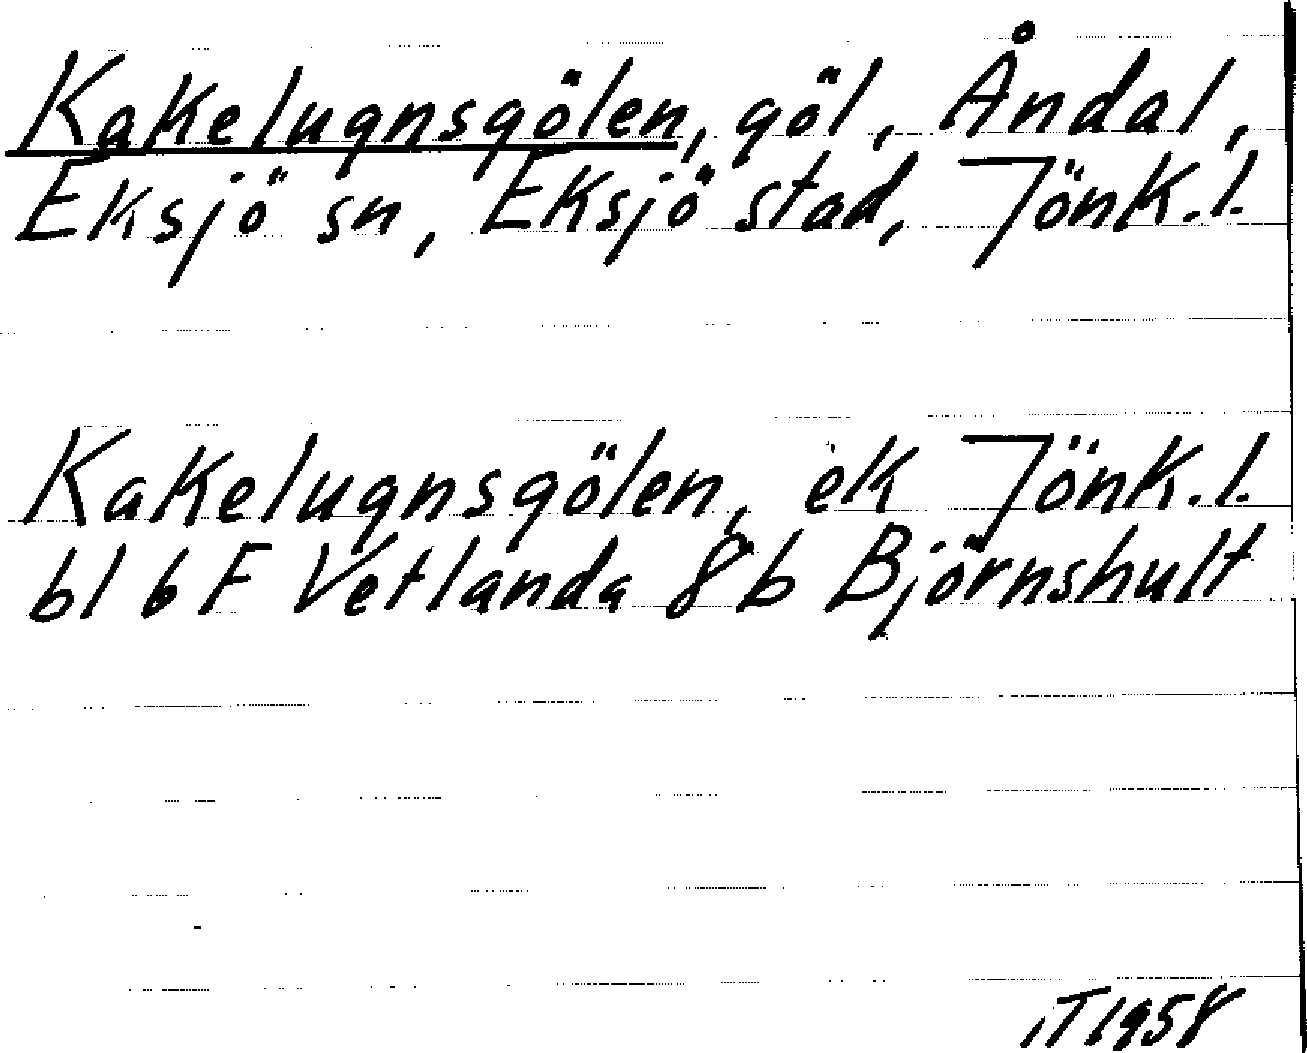 Kakelugnsgölen, göl, Åndal,
Eksjö sn, Eksjö stad, Jönk.l.
Kakelugnsgölen, ek Jönk.l.
bl 6 F Vetlanda 8b Björnshult
IT 1958